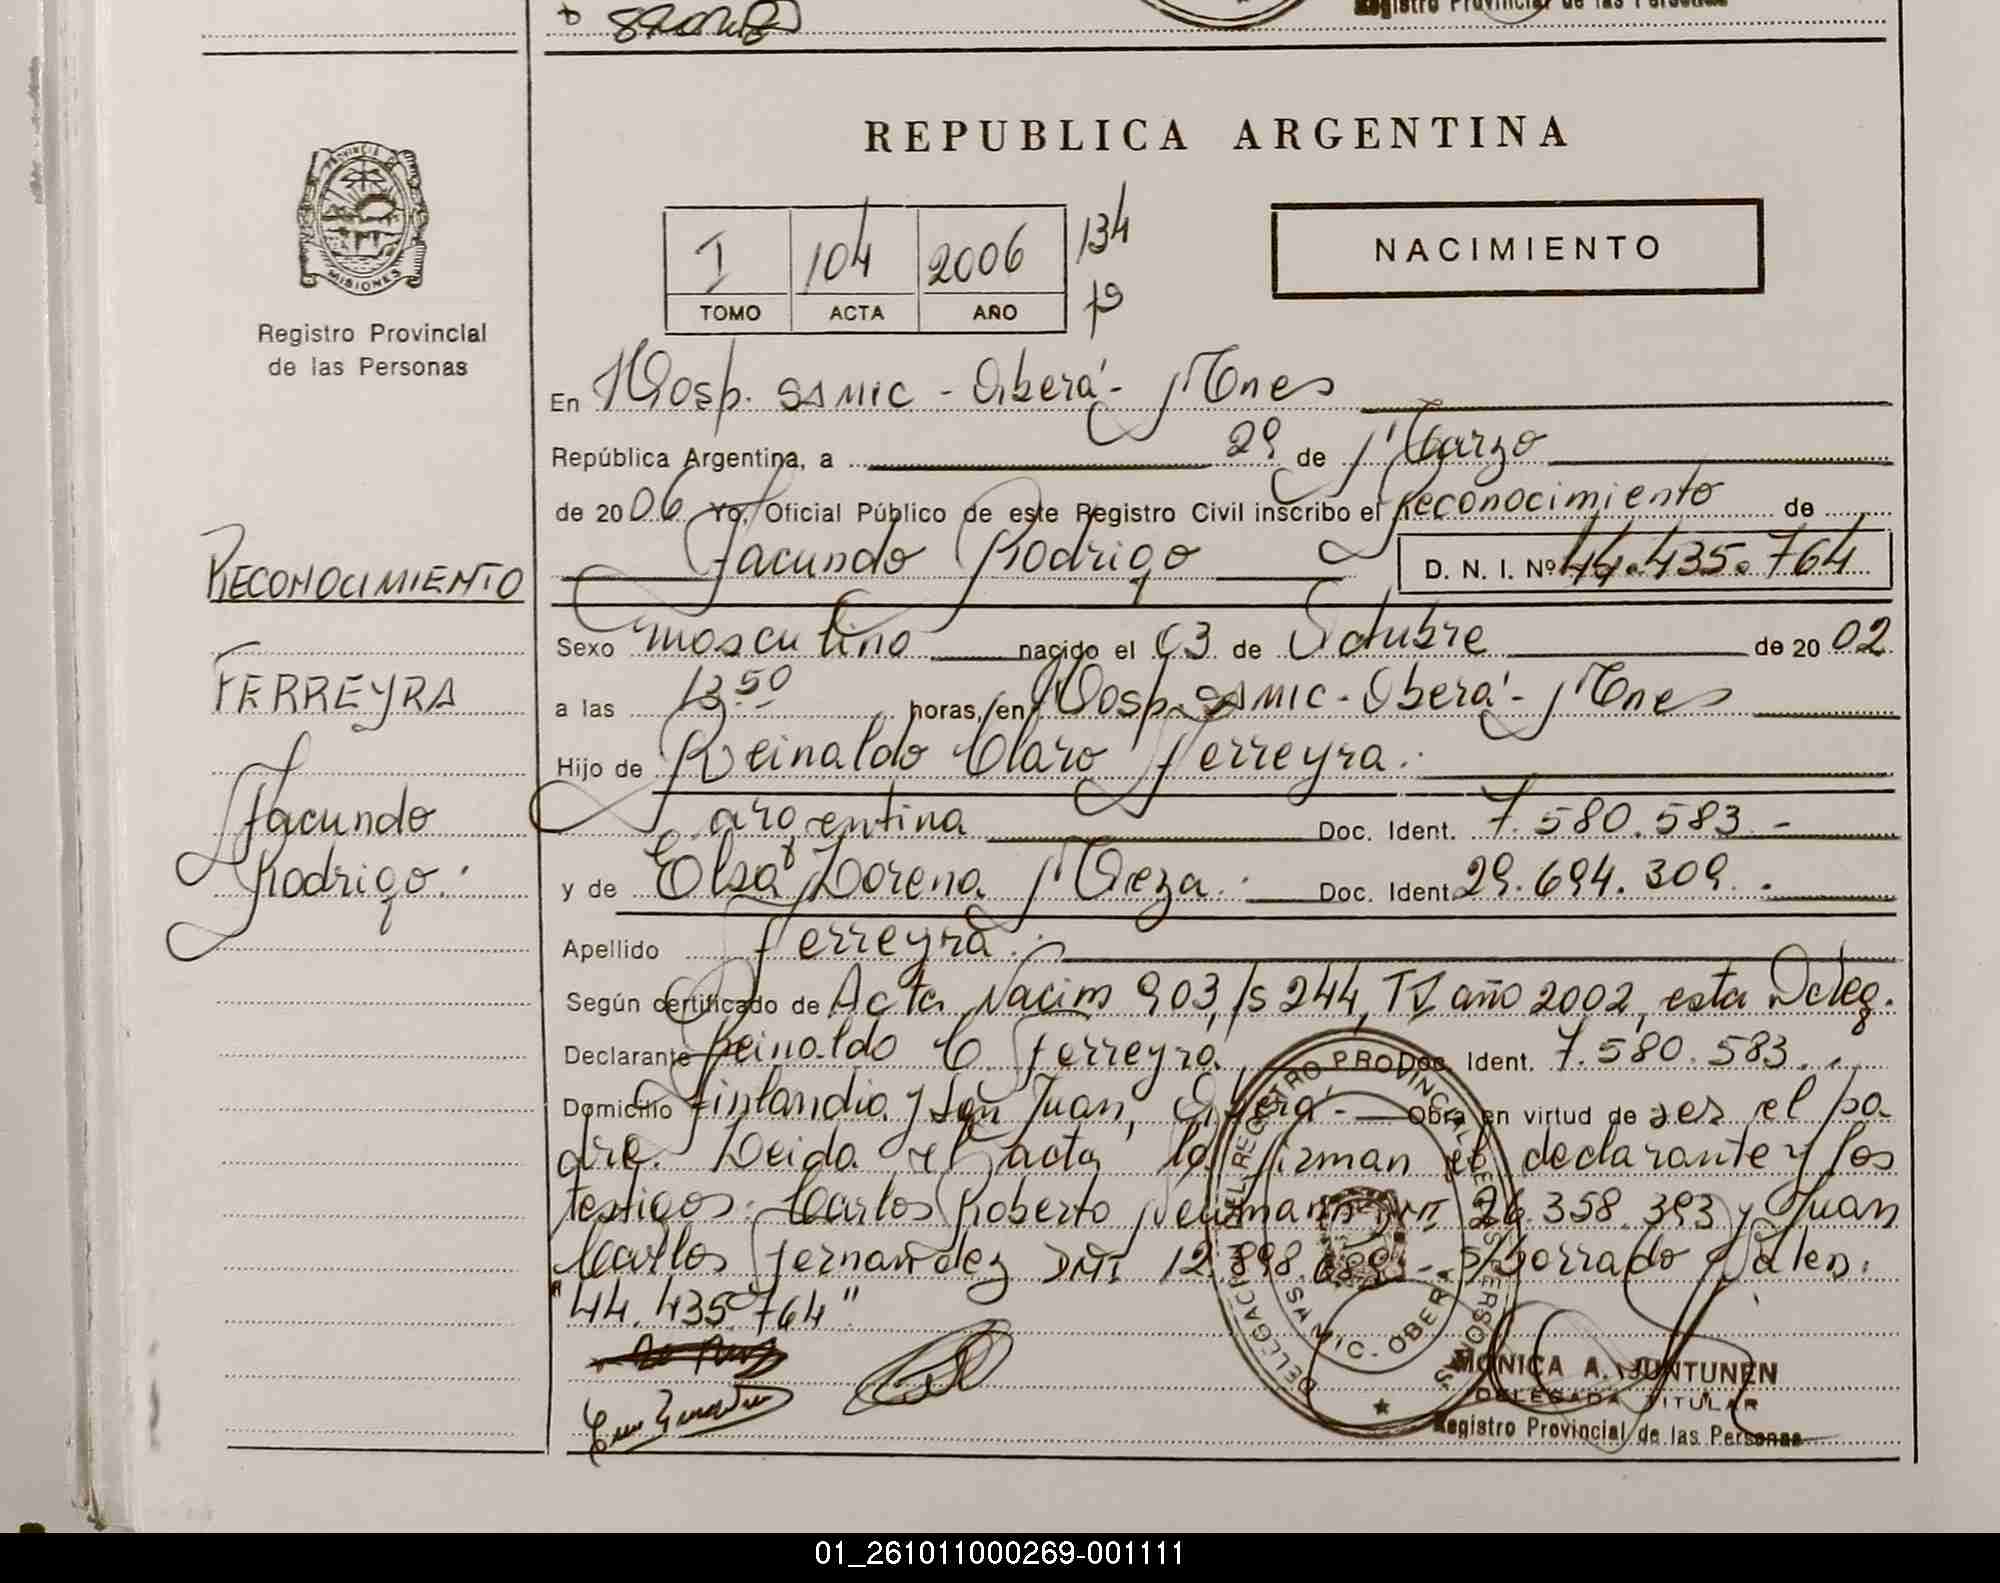 Registro Provincial de las Personas
REPUBLICA ARGENTINA
PROVINCIA DE
MISIONES
Registro Provincial
de las Personas
I 104 2006 134
TOMO ACTA AÑO
NACIMIENTO
En Hosp. SAMIC - Oberá - Mnes
República Argentina, a 29 de Marzo
de 2006 Yo, Oficial Público de este Registro Civil inscribo el Reconocimiento de
Facundo Rodrigo D. N. I. Nº 44.435.764
RECONOCIMIENTO
Sexo masculino nacido el 03 de Octubre de 20 02
FERREYRA
a las 13.50 horas, en Hosp. SAMIC - Oberá - Mnes
Hijo de Reinaldo Claro Ferreyra.
Facundo
Rodrigo.
argentina Doc. Ident. 7.580.583.-
y de Elsa Lorena Meza. Doc. Ident. 29.694.309.
Apellido Ferreyra.
Según certificado de Acta Nacim 903, fs 244, TI año 2002, esta Deleg.
Declarante Reinaldo C. Ferreyra Doc. Ident. 7.580.583.
Domicilio Finlandia y San Juan, Oberá.- Obra en virtud de ser el pa-
dre. Leida el acta la firman el declarante y los
testigos: Carlos Roberto Neumann DNI 26.358.393 y Juan
Carlos Fernandez DNI 12.898.689.- s/borrado Valen.
"44.435.764"
DELEGACION DEL REGISTRO PROVINCIAL DE LAS PERSONAS
SAMIC - OBERA
MONICA A. JUNTUNEN
DELEGADA TITULAR
Registro Provincial de las Personas
01_261011000269-001111